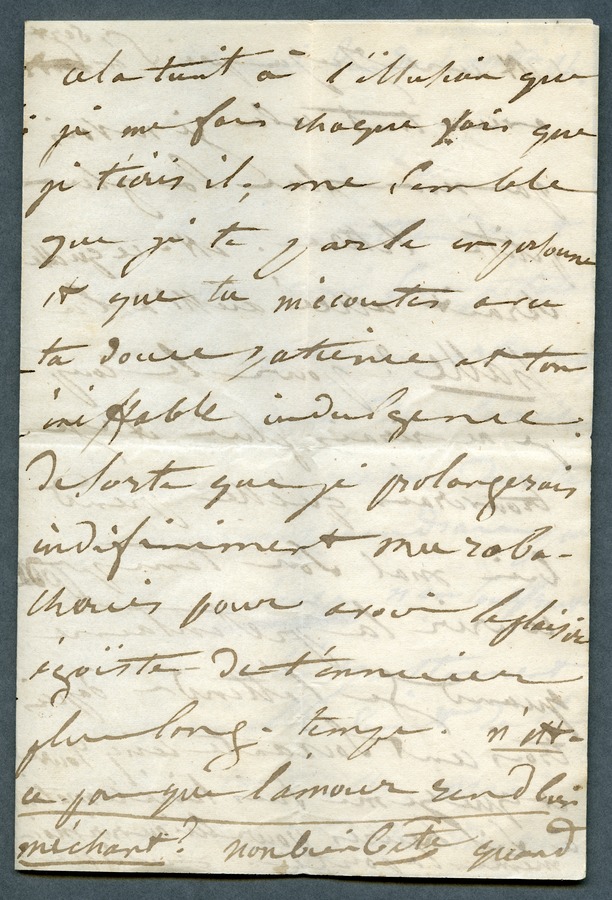 cela tient à l'illusion que
je me fais chaque fois que
je t'écris il; me semble
que je te parle en personne
et que tu m'écoutes avec
ta douce patience et ton
ineffable indulgence
de sorte que je prolongerais
indéfiniment mes raba-
cheries pour avoir le plaisir
égoïste de t'ennuier
plus long-temps. n'est-
ce pas que l'amour rend bien
méchant? non bien bête quand